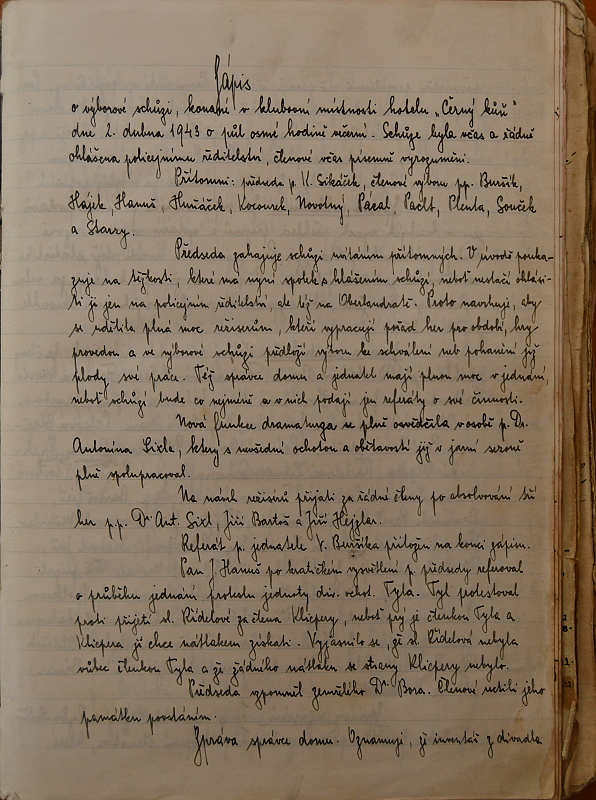 Zápis
o výborové schůzi, konané v klubovní místnosti hotelu „Černý kůň"
dne 2. dubna 1943 o půl osmé hodině večerní. Schůze byla včas a řádně
ohlášena policejnímu ředitelství, členové včas písemně vyrozuměni.
Přítomni: předseda p. K. Sikáček, členové výboru pp. Buršík,
Hájek, Hanuš, Hušáček, Kocourek, Novotný, Pácal, Pacht, Plenta, Souček
a Starry.
Předseda zahajuje schůzi uvítáním přítomných. V úvodě pouka-
zuje na těžkosti, které má nyní spolek s hlášením schůzí, neboť nestačí ohlási-
ti je jen na policejním ředitelství, ale též na Oberlandratě. Proto navrhuje, aby
se udělila plná moc režiserům, kteří vypracují pořad her pro období, hry
provedou a ve výborové schůzi předloží výboru ke schválení neb pohanění její
plody své práce. Též správce domu a jednatel mají plnou moc v jednání,
neboť schůzí bude co nejméně a v nich podají jen referáty o své činnosti.
Nová funkce dramaturga se plně osvědčila v osobě p. Dr.
Antonína Sixla, který s nevšední ochotou a obětavostí její v jarní sezoně
plně spolupracoval.
Na návrh režisérů přijati za řádné členy po absolvování tří
her p.p. Dr. Ant. Sixl, Jiří Bartoš a Jiří Hejzlar.
Referát p. jednatele V. Buršíka přiložen na konci zápisu.
Pan J. Hanuš po kratičkém vysvětlení p. předsedy referoval
o průběhu jednání protestu jednoty div. ochot. Tyla. Tyl protestoval
proti přijetí sl. Řídelové za člena Klicpery, neboť prý je členkou Tyla a
Klicpera ji chce nátlakem získati. Vyjasnilo se, že sl. Řídelová nebyla
vůbec členkou Tyla a že žádného nátlaku se strany Klicpery nebylo.
Předseda vzpomněl zemřelého Dr. Bora. Členové uctili jeho
památku povstáním.
Zpráva správce domu. Oznamuje, že inventář z divadla